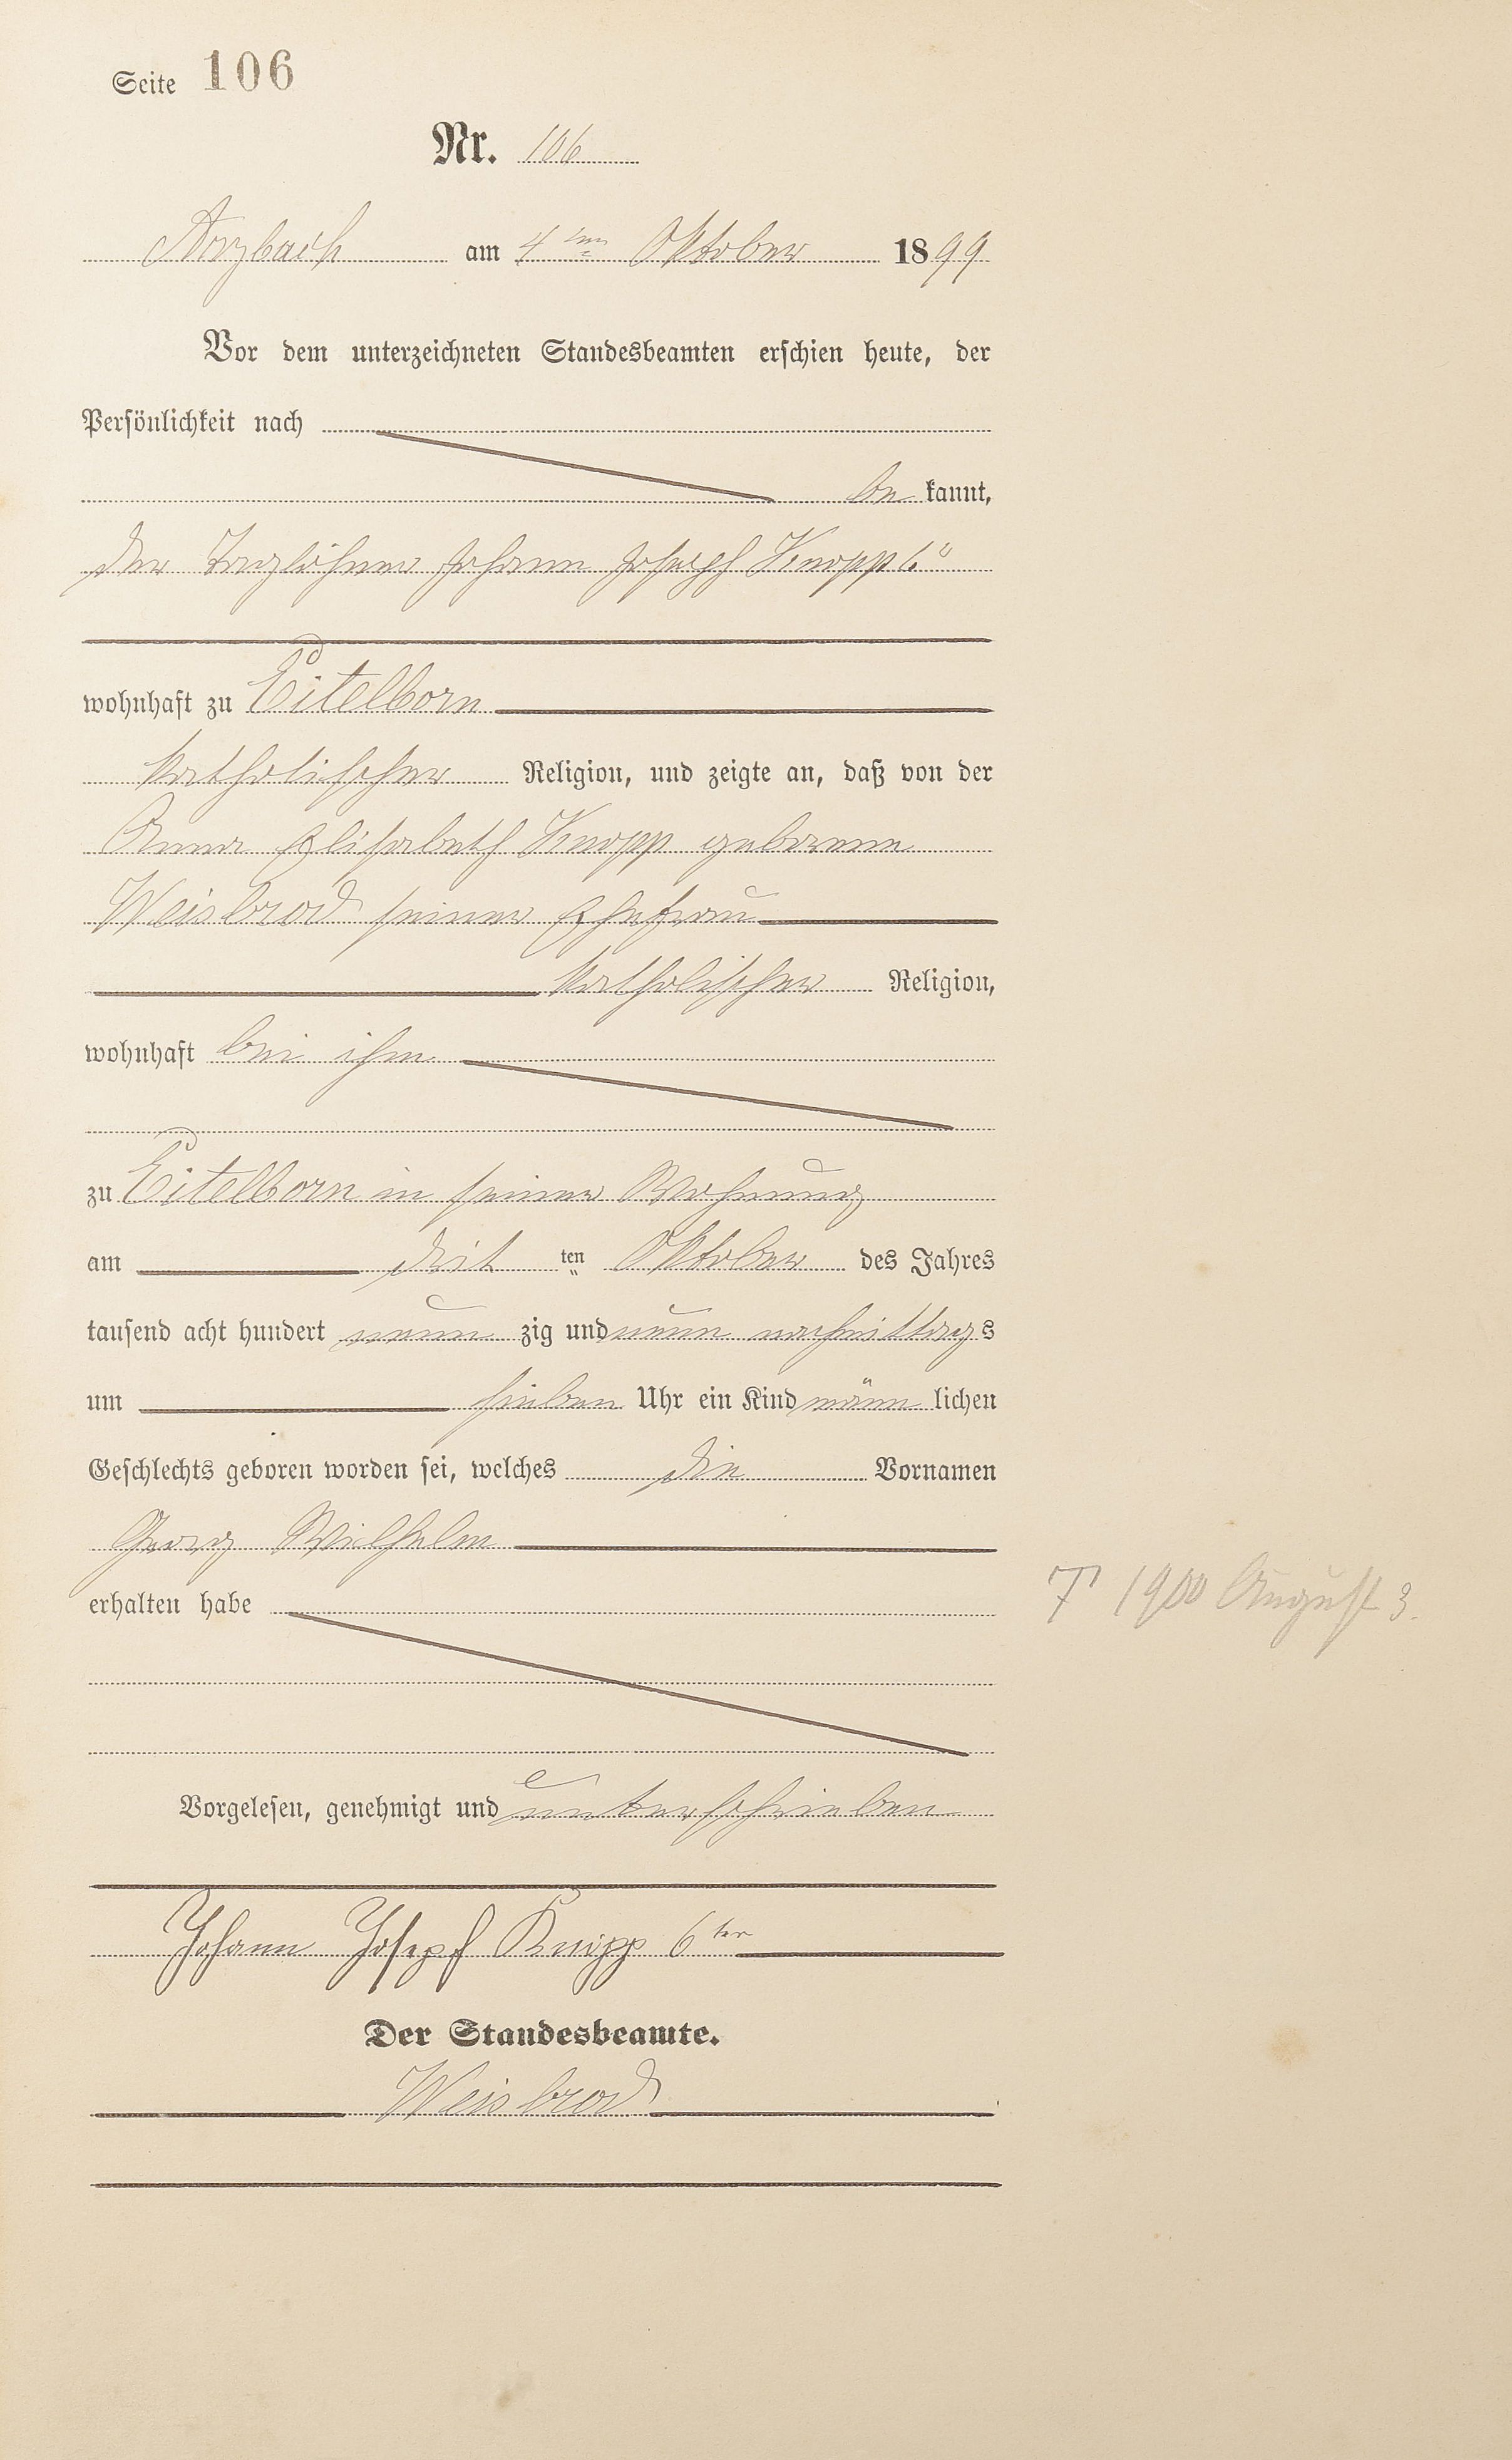 Seite 106
Nr. 106
Arzbach am 4ten Oktober 1899
Vor dem unterzeichneten Standesbeamten erschien heute, der
Persönlichkeit nach
be kannt,
der Taglöhner Johann Joseph Knopp 6r
wohnhaft zu Eitelborn
katholischer Religion, und zeigte an, daß von der
Anna Elisabeth Knopp geborene
Weisbrod seiner Ehefrau
katholischer Religion,
wohnhaft bei ihm
zu Eitelborn in seiner Wohnung
am drit ten Oktober des Jahres
tausend acht hundert neun zig und neun nachmittags
um sieben Uhr ein Kind männ lichen
Geschlechts geboren worden sei, welches die Vornamen
Georg Wilhelm
erhalten habe
† 1900 August 3.
Vorgelesen, genehmigt und unterschrieben
Johann Josepf Knopp 6ter
Der Standesbeamte.
Weisbrod